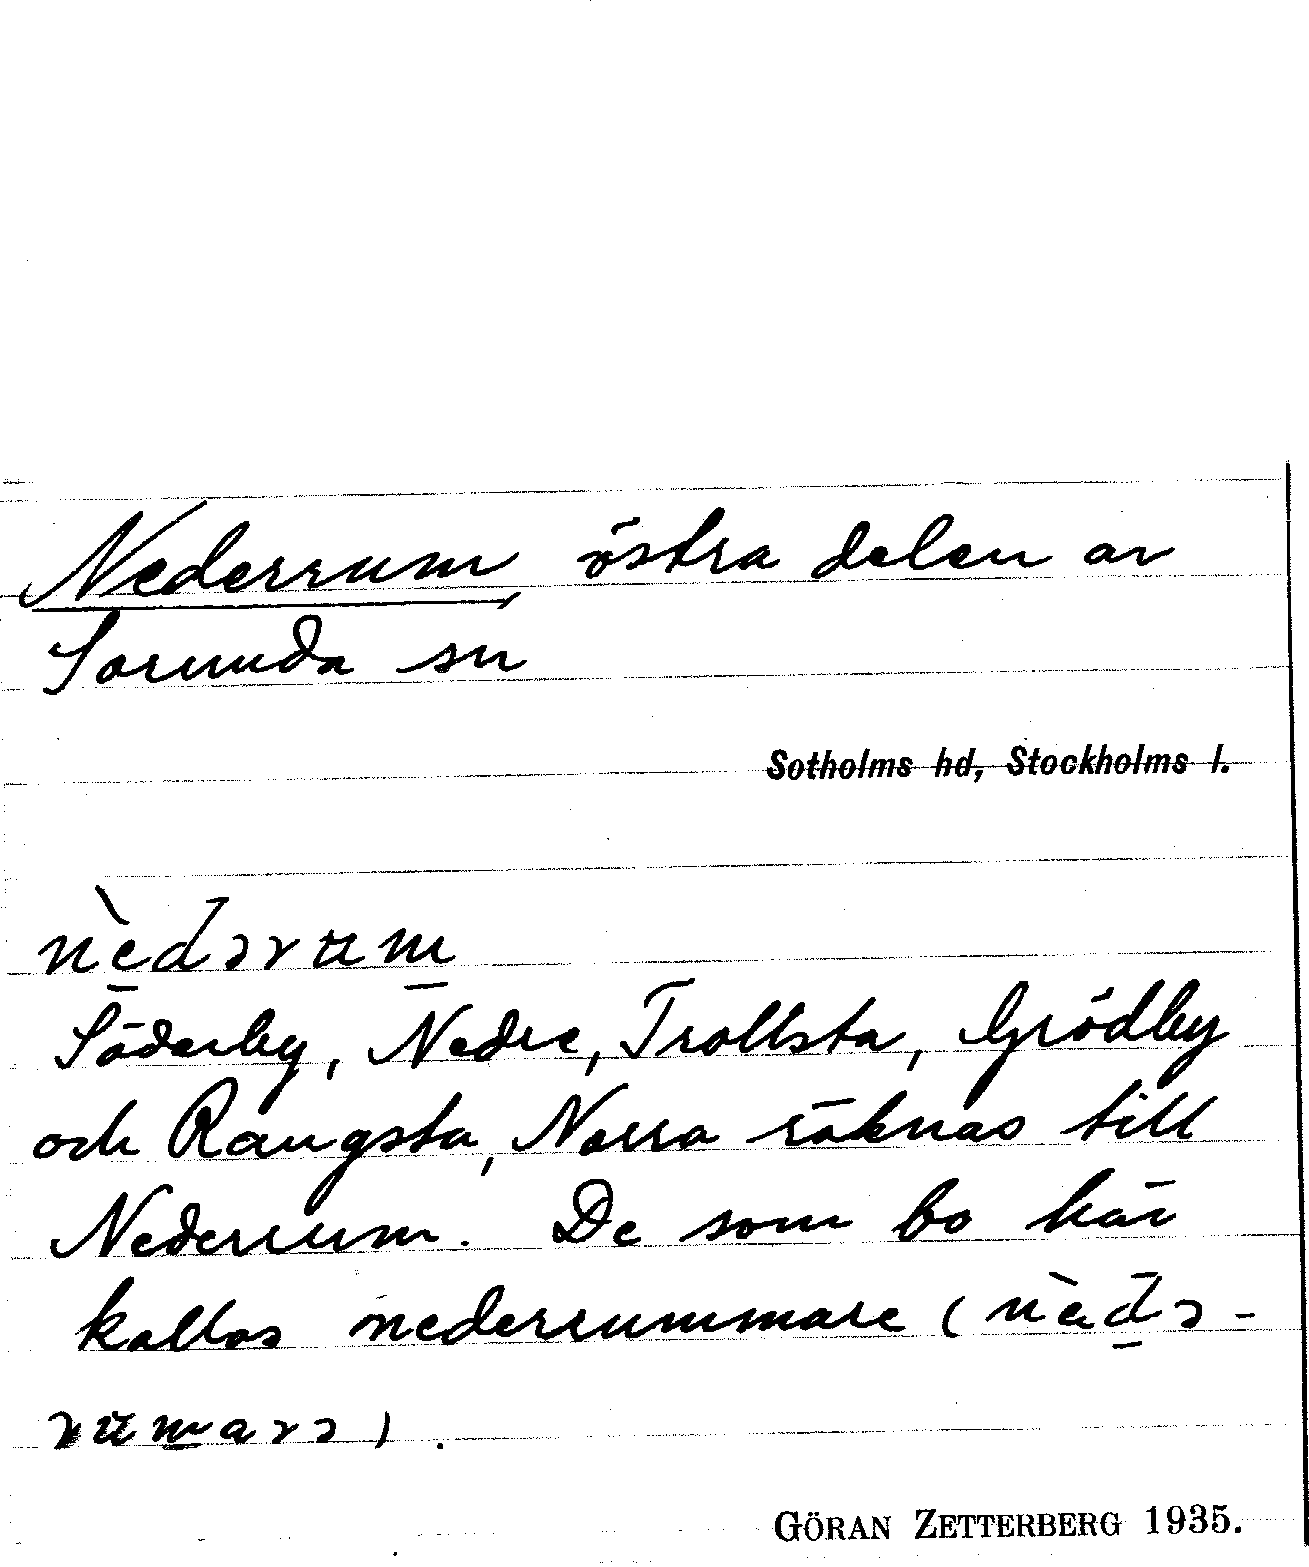 Nederrum, östra delen av
Sorunda sn
Sotholms hd, Stockholms l.
nèdərum
Söderby, Nedre, Trollsta, Grödby
och Rangsta, Norra räknas till
Nederrum. De som bo här
kallas nederrummare (nèdə-
rumarə).
GÖRAN ZETTERBERG 1935.